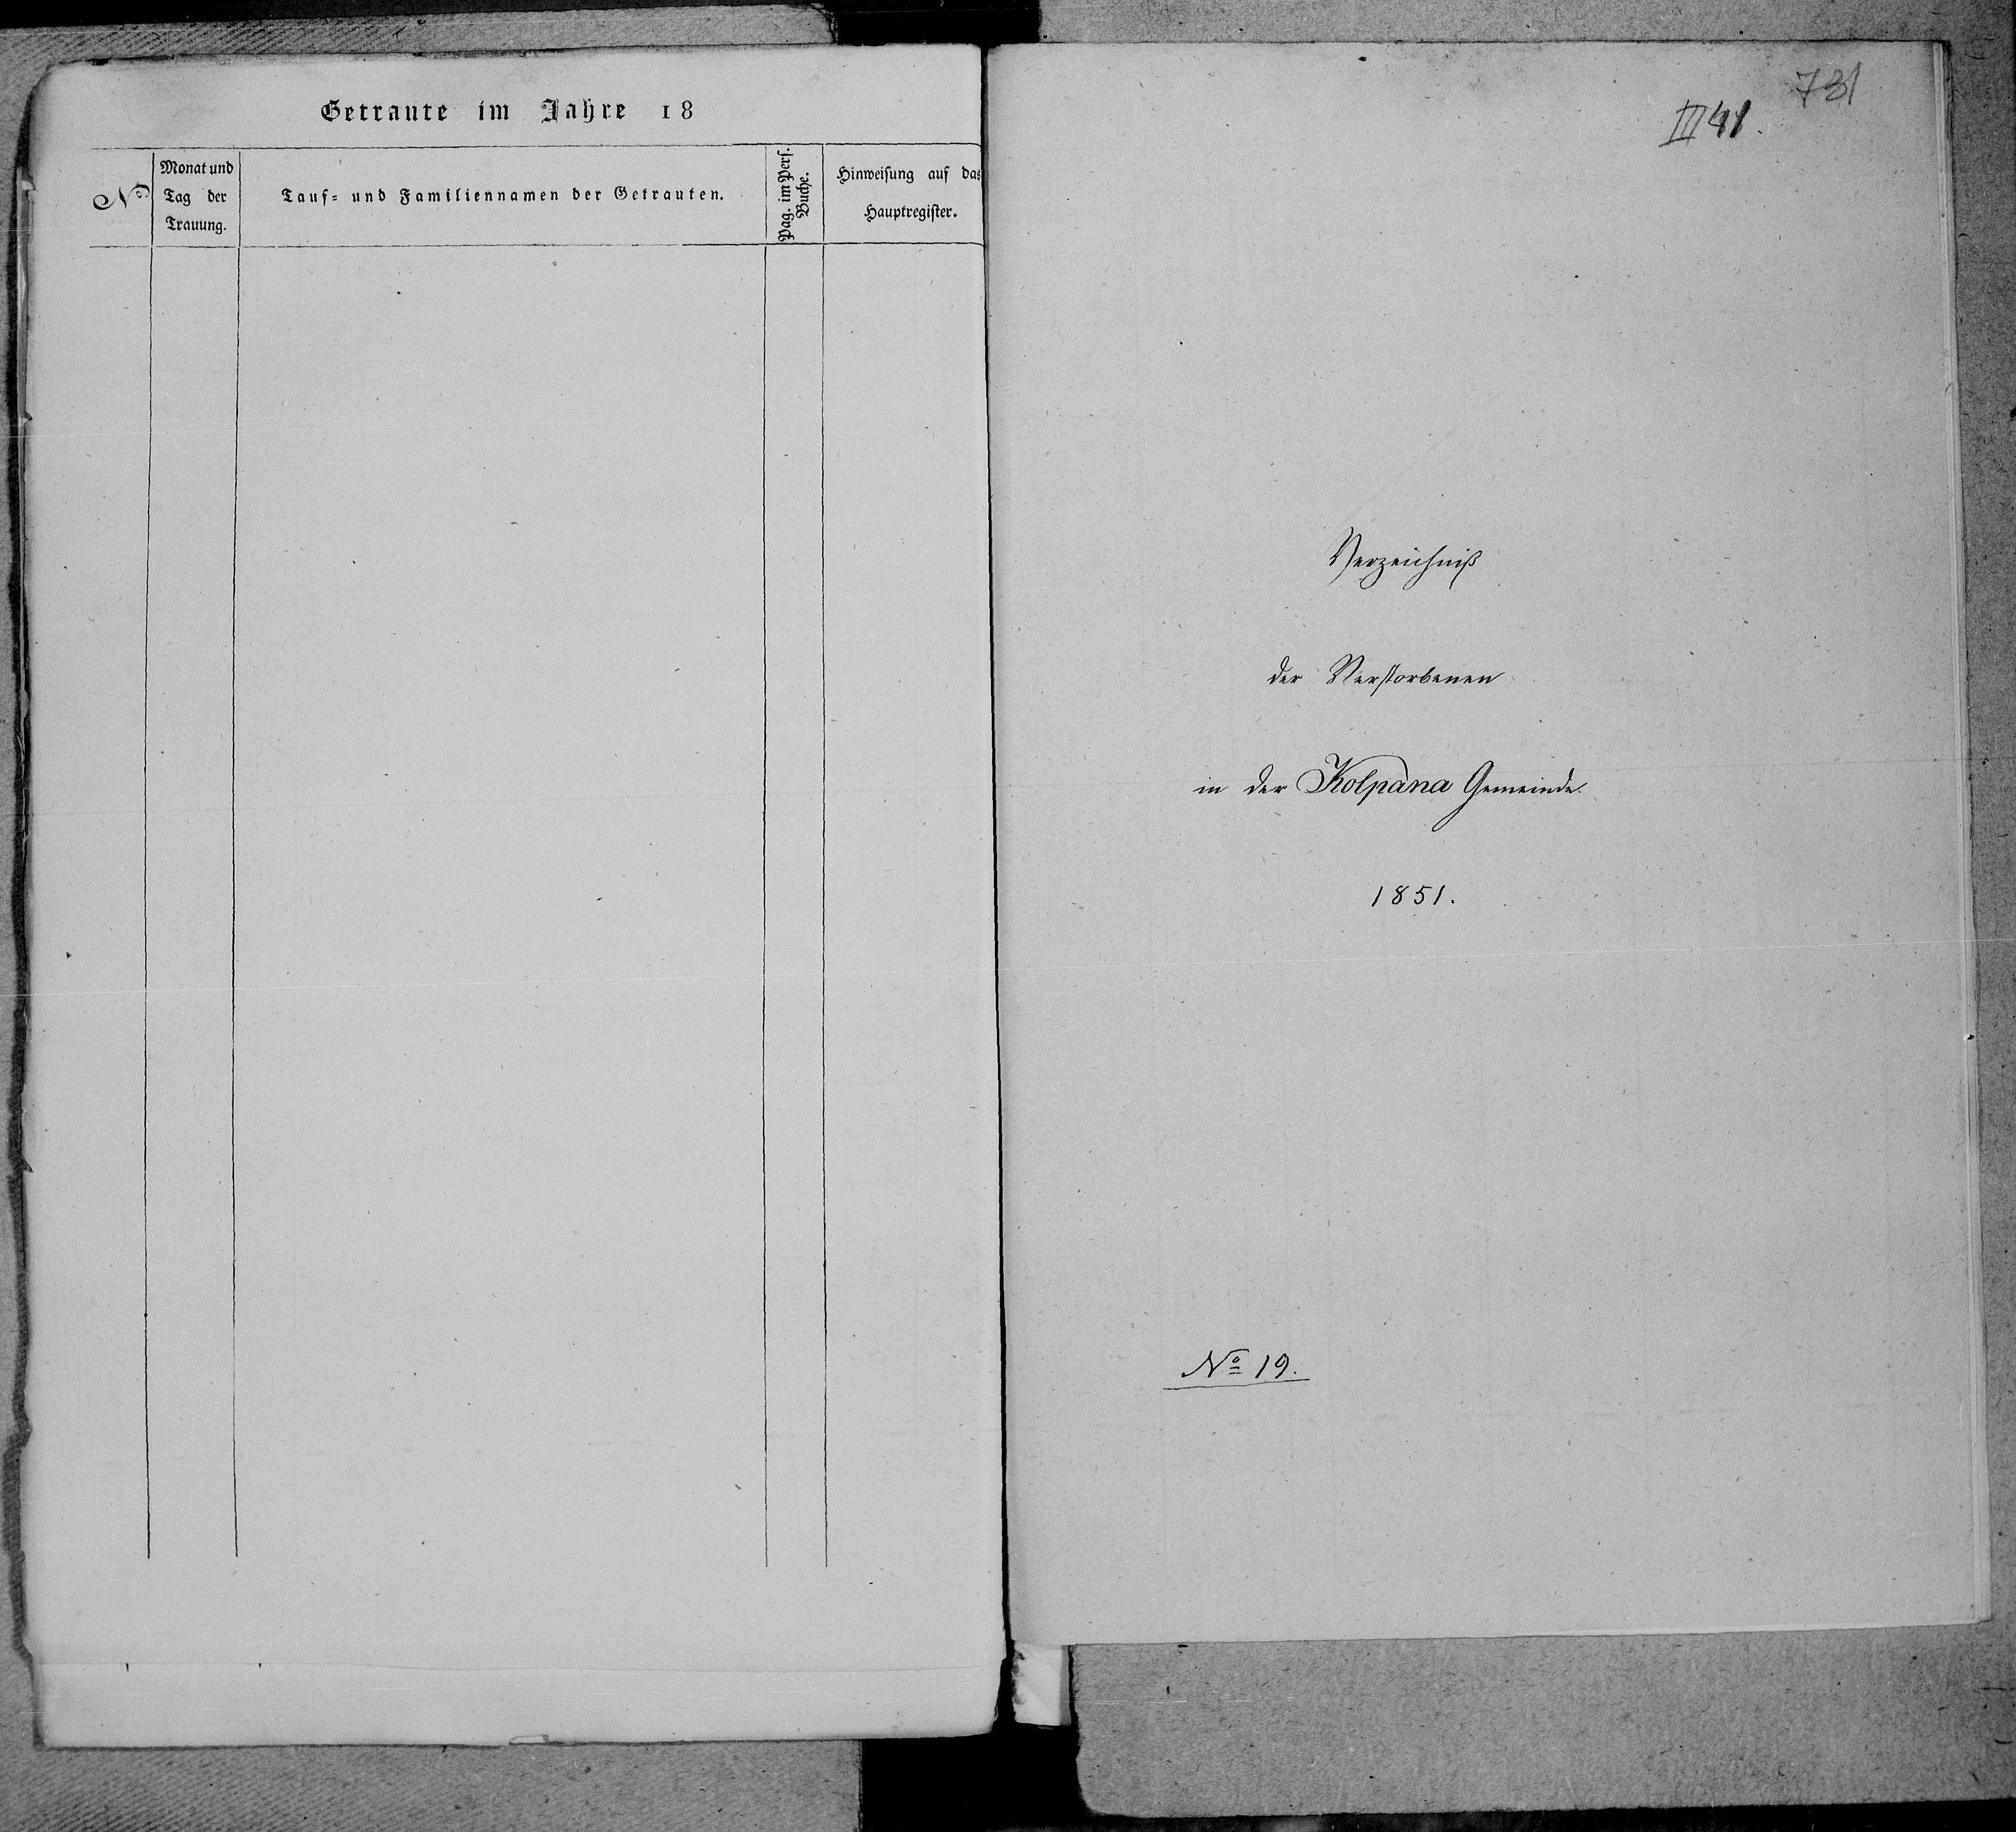 Getraute im Jahre 18
No
Monat und
Tag der
Trauung.
Tauf= und Familiennamen der Getrauten.
Pag. im Pers.
Buche.
Hinweisung auf das
Hauptregister.
731
III 41.
Verzeichniß
der Verstorbenen
in der Kolpàna Gemeinde.
1851.
No 19.